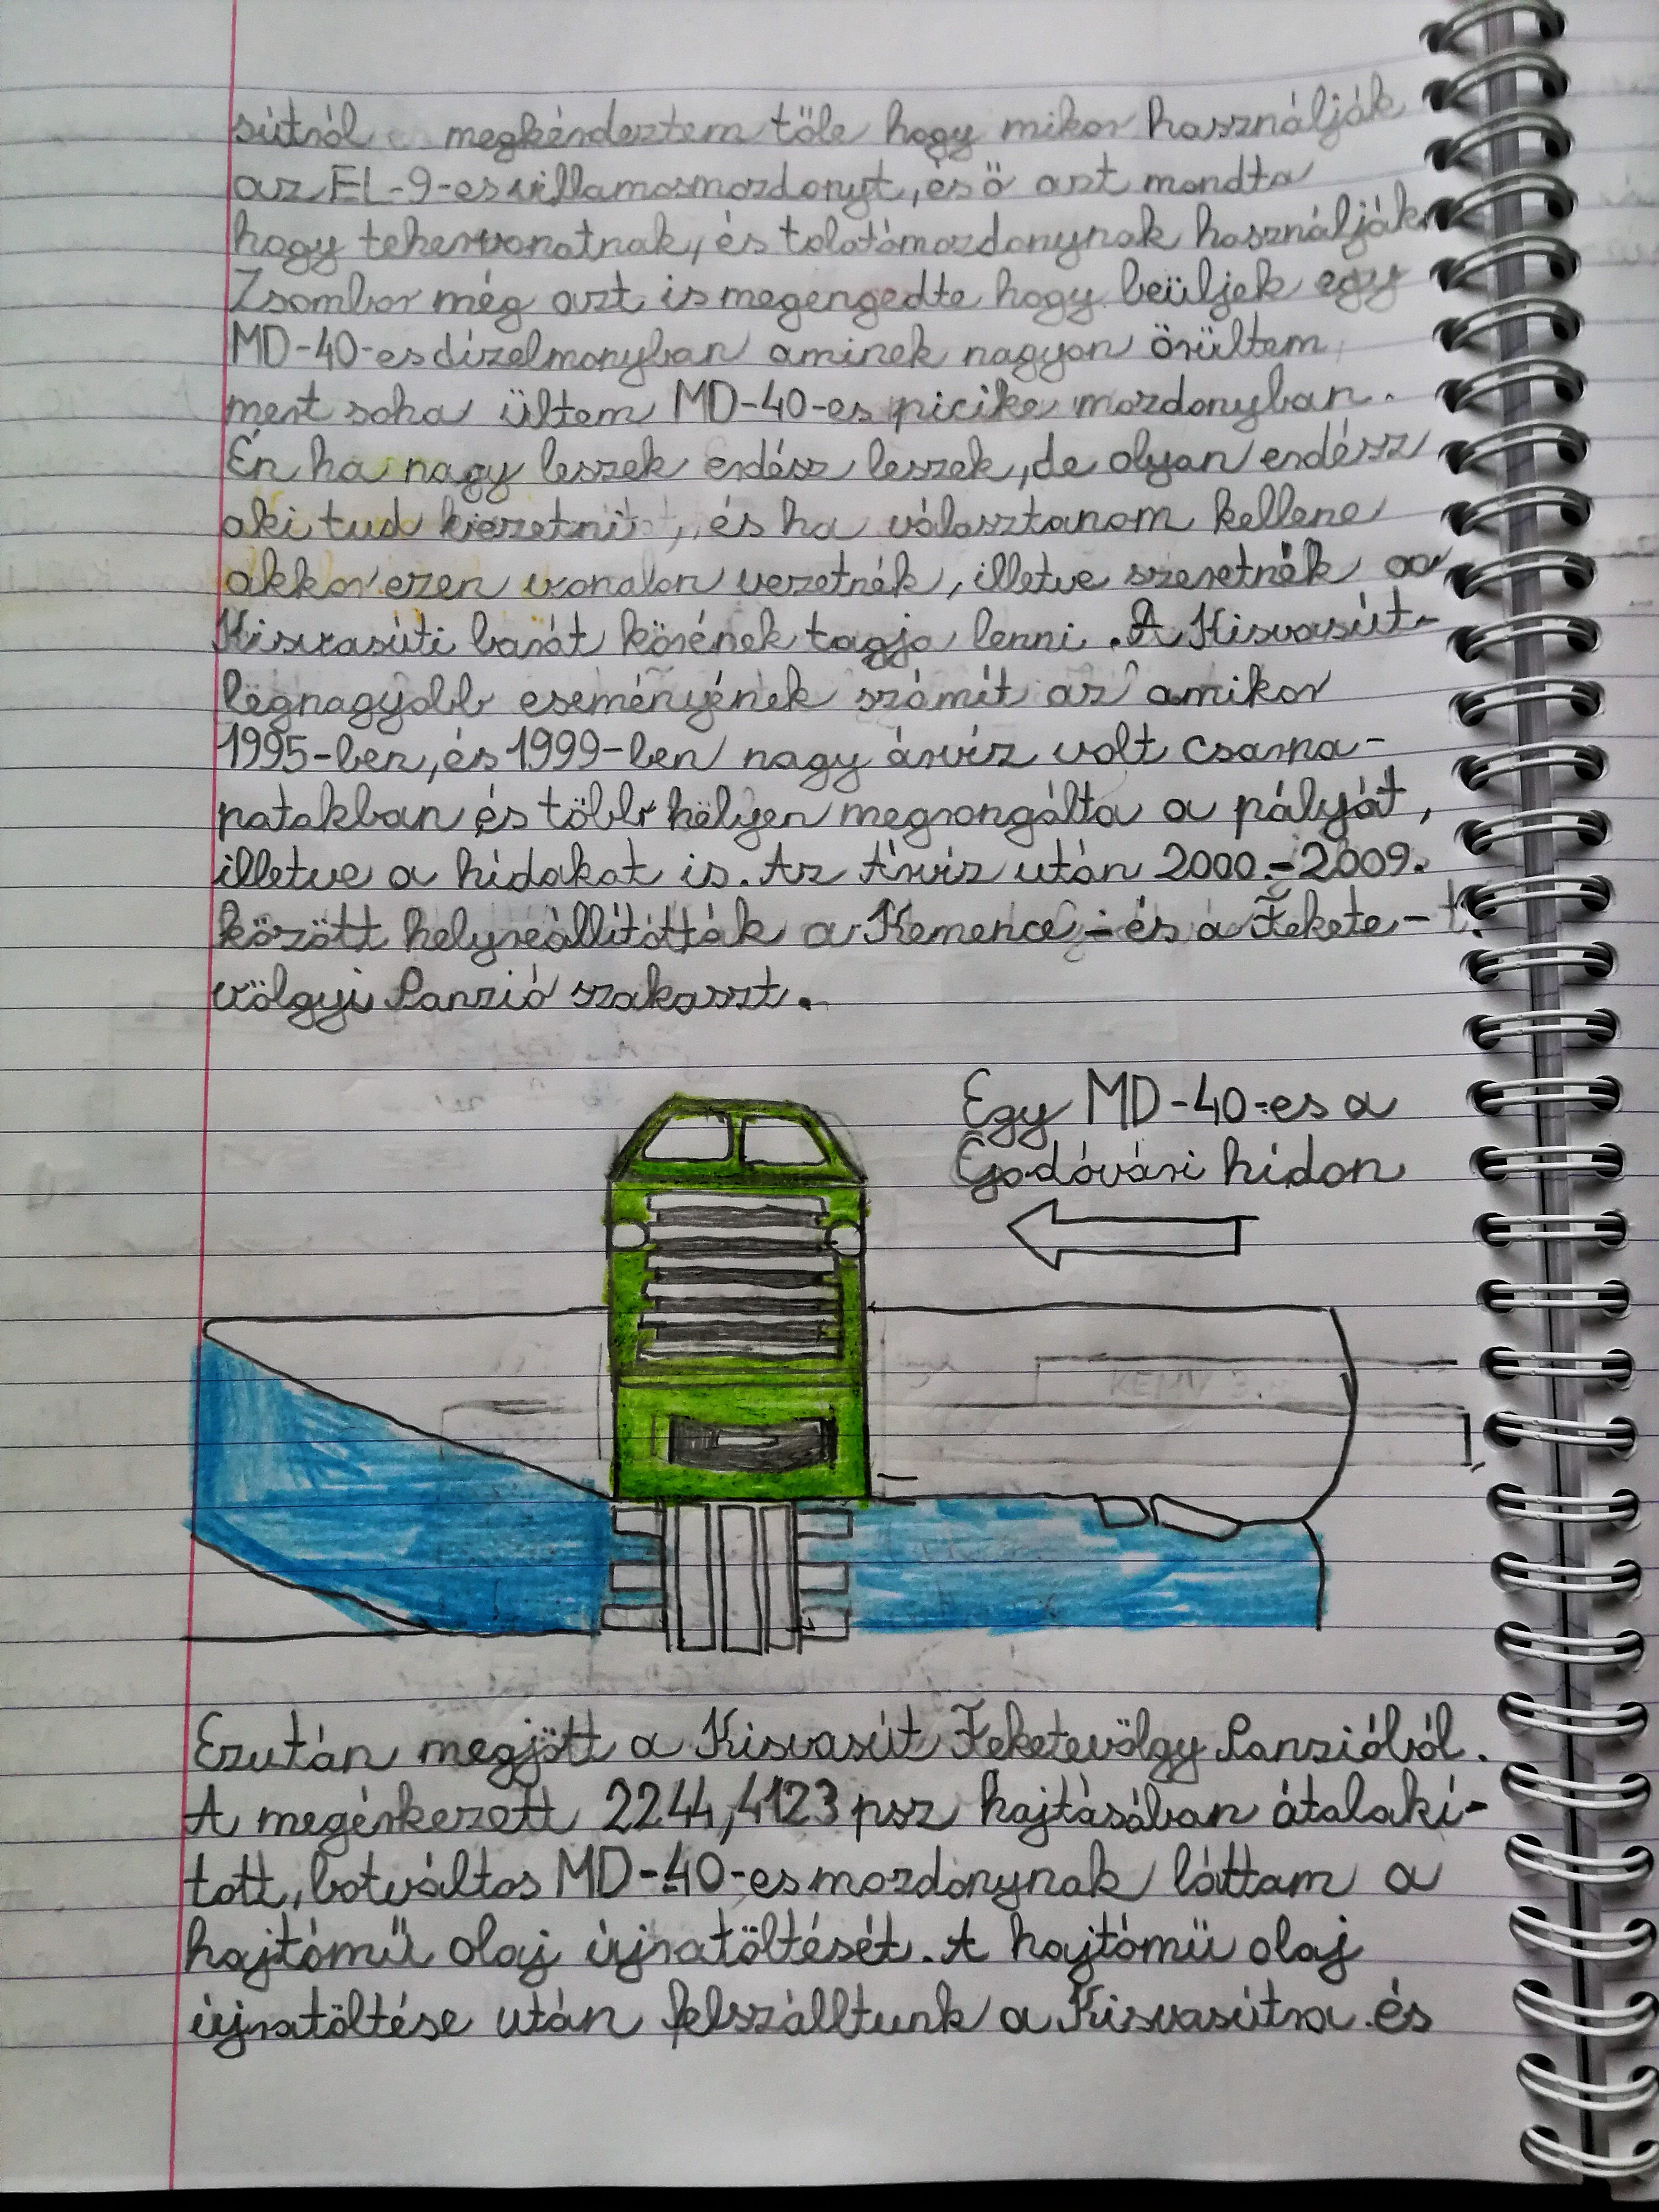 sútról megkérdeztem tőle hogy mikor használják
az EL-9-es villamosmozdonyt, és ő azt mondta
hogy tehervonatnak, és tolatómozdonynak használják
Zsombor még azt is megengedte hogy beüljek egy
MD-40-es dízelmonyban aminek nagyon örültem
mert soha ültem MD-40-es picike mozdonyban.
Én ha nagy leszek erdész leszek, de olyan erdész
aki tud és ha választanom kellene
akkor ezen vonalon vezetnék, illetve szeretnék a
Kisvasúti barát körének tagja lenni. A Kisvasút-
legnagyobb eseményének számít az amikor
1995-ben, és 1999-ben nagy árvíz volt Csarna-
patakban és több helyen megrongálta a pályát,
illetve a hidakat is. Az Árvíz után 2000.-2009.
között helyreállították a Kemence - és a Fekete-
völgyi Panzió szakaszt.
Egy MD-40-es a
Godóvári hídon
KEMN 3.
Ezután megjött a Kisvasút Feketevölgy Panzióból.
A megérkezett 2244,4123 psz hajtásában átalakí-
tott, botváltos MD-40-es mozdonynak láttam a
hajtómű olaj újratöltését. A hajtómű olaj
újratöltése után felszálltunk a Kisvasútra és